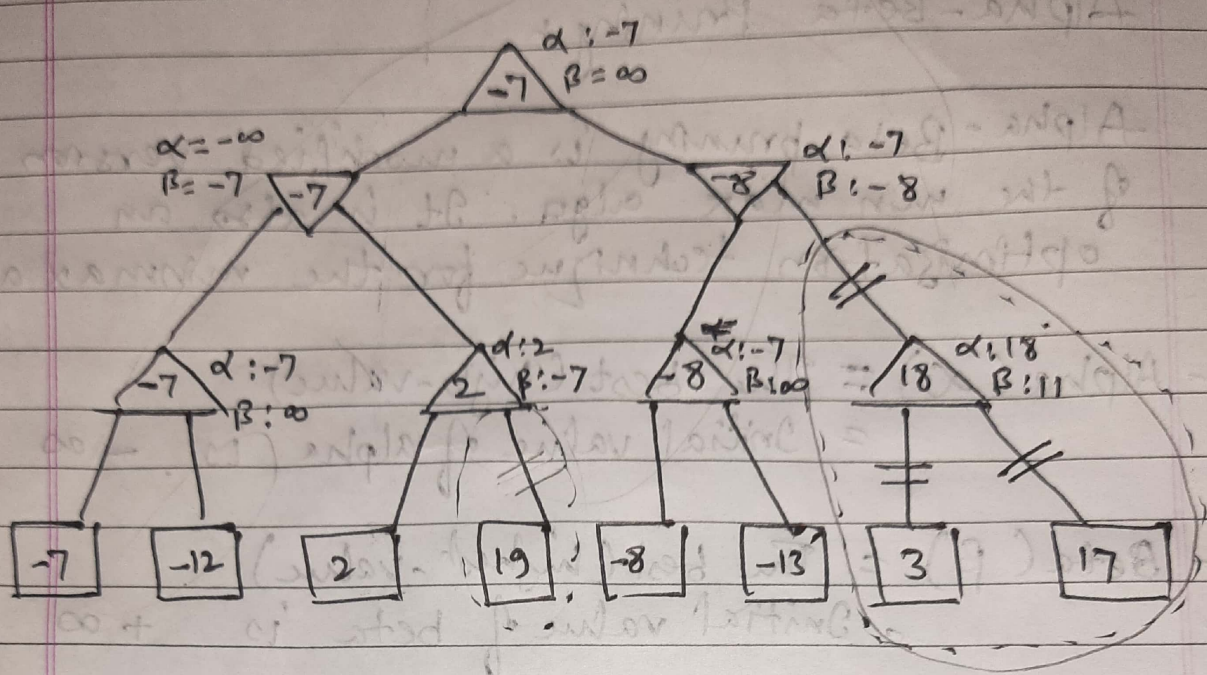 α : -7
-7
β = ∞
α = -∞
β = -7
-7
α : -7
-8
β : -8
-7
α : -7
β : ∞
α : 2
2
β : -7
-8
α : -7
β : ∞
18
α : 18
β : 11
-7
-12
2
19
-8
-13
3
17